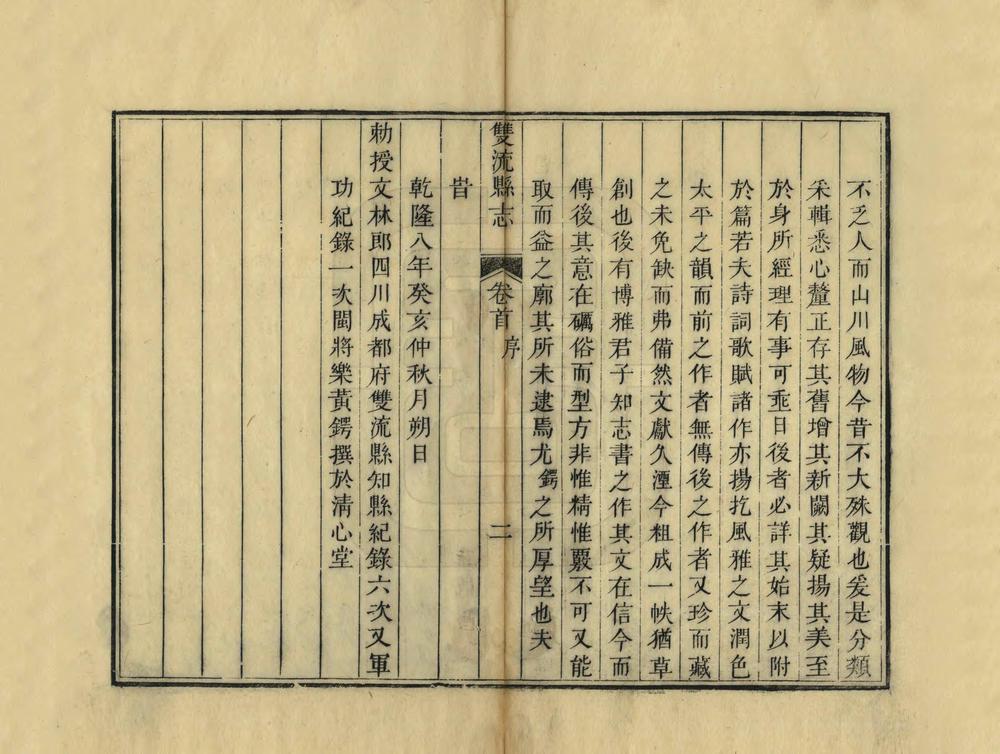 不乏人而山川風物今昔不大殊觀也爰是分類
采輯悉心釐正存其舊增其新闕其疑揚其美至
於身所經理有事可垂日後者必詳其始末以附
於篇若夫詩詞歌賦諸作亦揚扢風雅之文潤色
太平之韻而前之作者無傳後之作者又珍而藏
之未免缺而弗備然文獻久湮今粗成一帙猶草
創也後有博雅君子知志書之作其文在信今而
傳後其意在礪俗而型方非惟精惟覈不可又能
取而益之廓其所未逮焉尤鍔之所厚望也夫
雙流縣志 卷首 序 二
旹
乾隆八年癸亥仲秋月朔日
勅授文林郎四川成都府雙流縣知縣紀錄六次又軍
功紀錄一次閩將樂黃鍔撰於清心堂